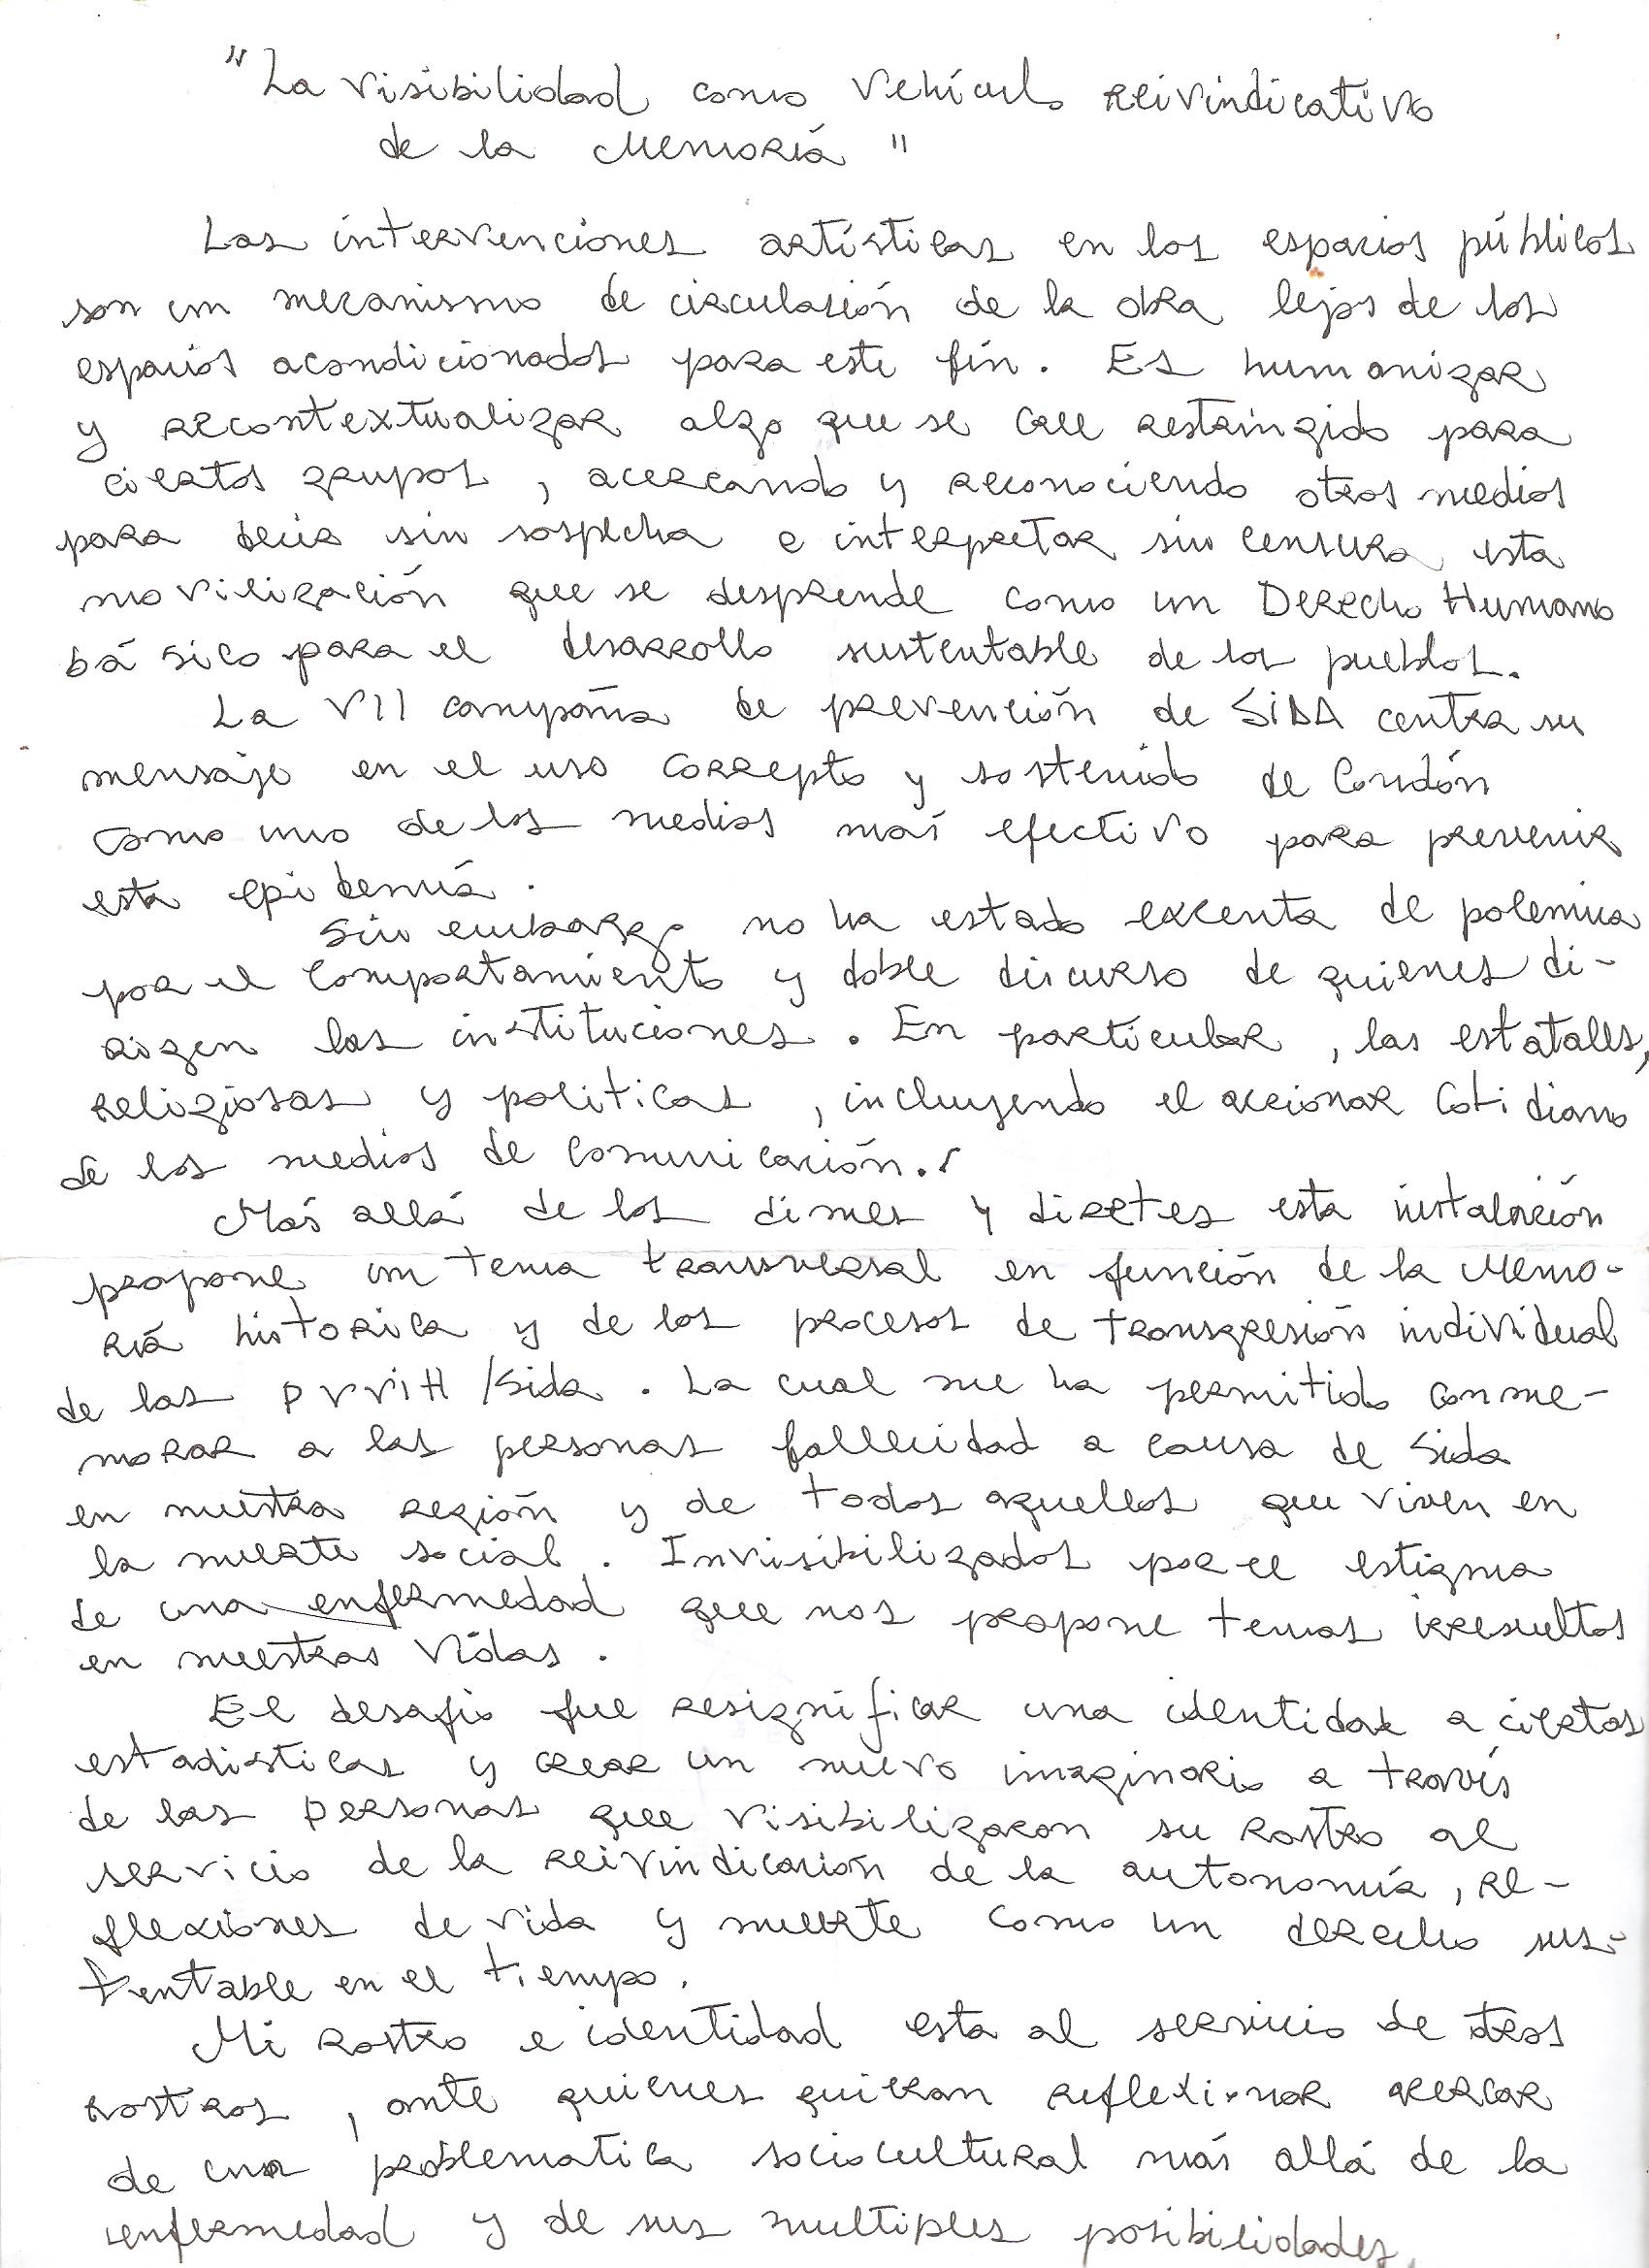 "La visibilidad como vehículo reivindicativo
de la Memoria"
Las intervenciones artísticas en los espacios públicos
son un mecanismo de circulación de la obra lejos de los
espacios acondicionados para este fin. Es humanizar
y recontextualizar algo que se cree restringido para
ciertos grupos, acercando y reconociendo otros medios
para decir sin sospecha e interpretar sin censura, esta
movilización que se desprende como un Derecho Humano
básico para el desarrollo sustentable de los pueblos.
La VII campaña de prevención de SIDA centra su
mensaje en el uso correpto y sostenido de Condón
como uno de los medios más efectivo para prevenir
esta epidemia.
Sin embargo no ha estado excenta de polemica
por el comportamiento y doble discurso de quienes di-
rigen las instituciones. En particular, las estatales,
religiosas y politicas, incluyendo el accionar cotidiano
de los medios de comunicación.
Más allá de los dimes y diretes esta instalación
propone un tema transversal en función de la Memo-
ria historica y de los procesos de transgresión individual
de las PVVIH/Sida. La cual me ha permitido conme-
morar a las personas fallecidad a causa de Sida
en nuestra región y de todos aquellos que viven en
la muerte social. Invisibilizados por el estigma
de una enfermedad que nos propone temas irresueltos
en nuestras vidas.
El desafio fue resignificar una identidad a ciertas
estadisticas y crear un nuevo imaginario a través
de las personas que visibilizaron su rostro al
servicio de la reivindicación de la autonomía, re-
flexiones de vida y muerte como un derecho sus-
tentable en el tiempo.
Mi rostro e identidad esta al servicio de otros
rostros, ante quienes quieran reflexionar acercar
de una problematica sociocultural más allá de la
enfermedad y de sus multiples posibilidades.